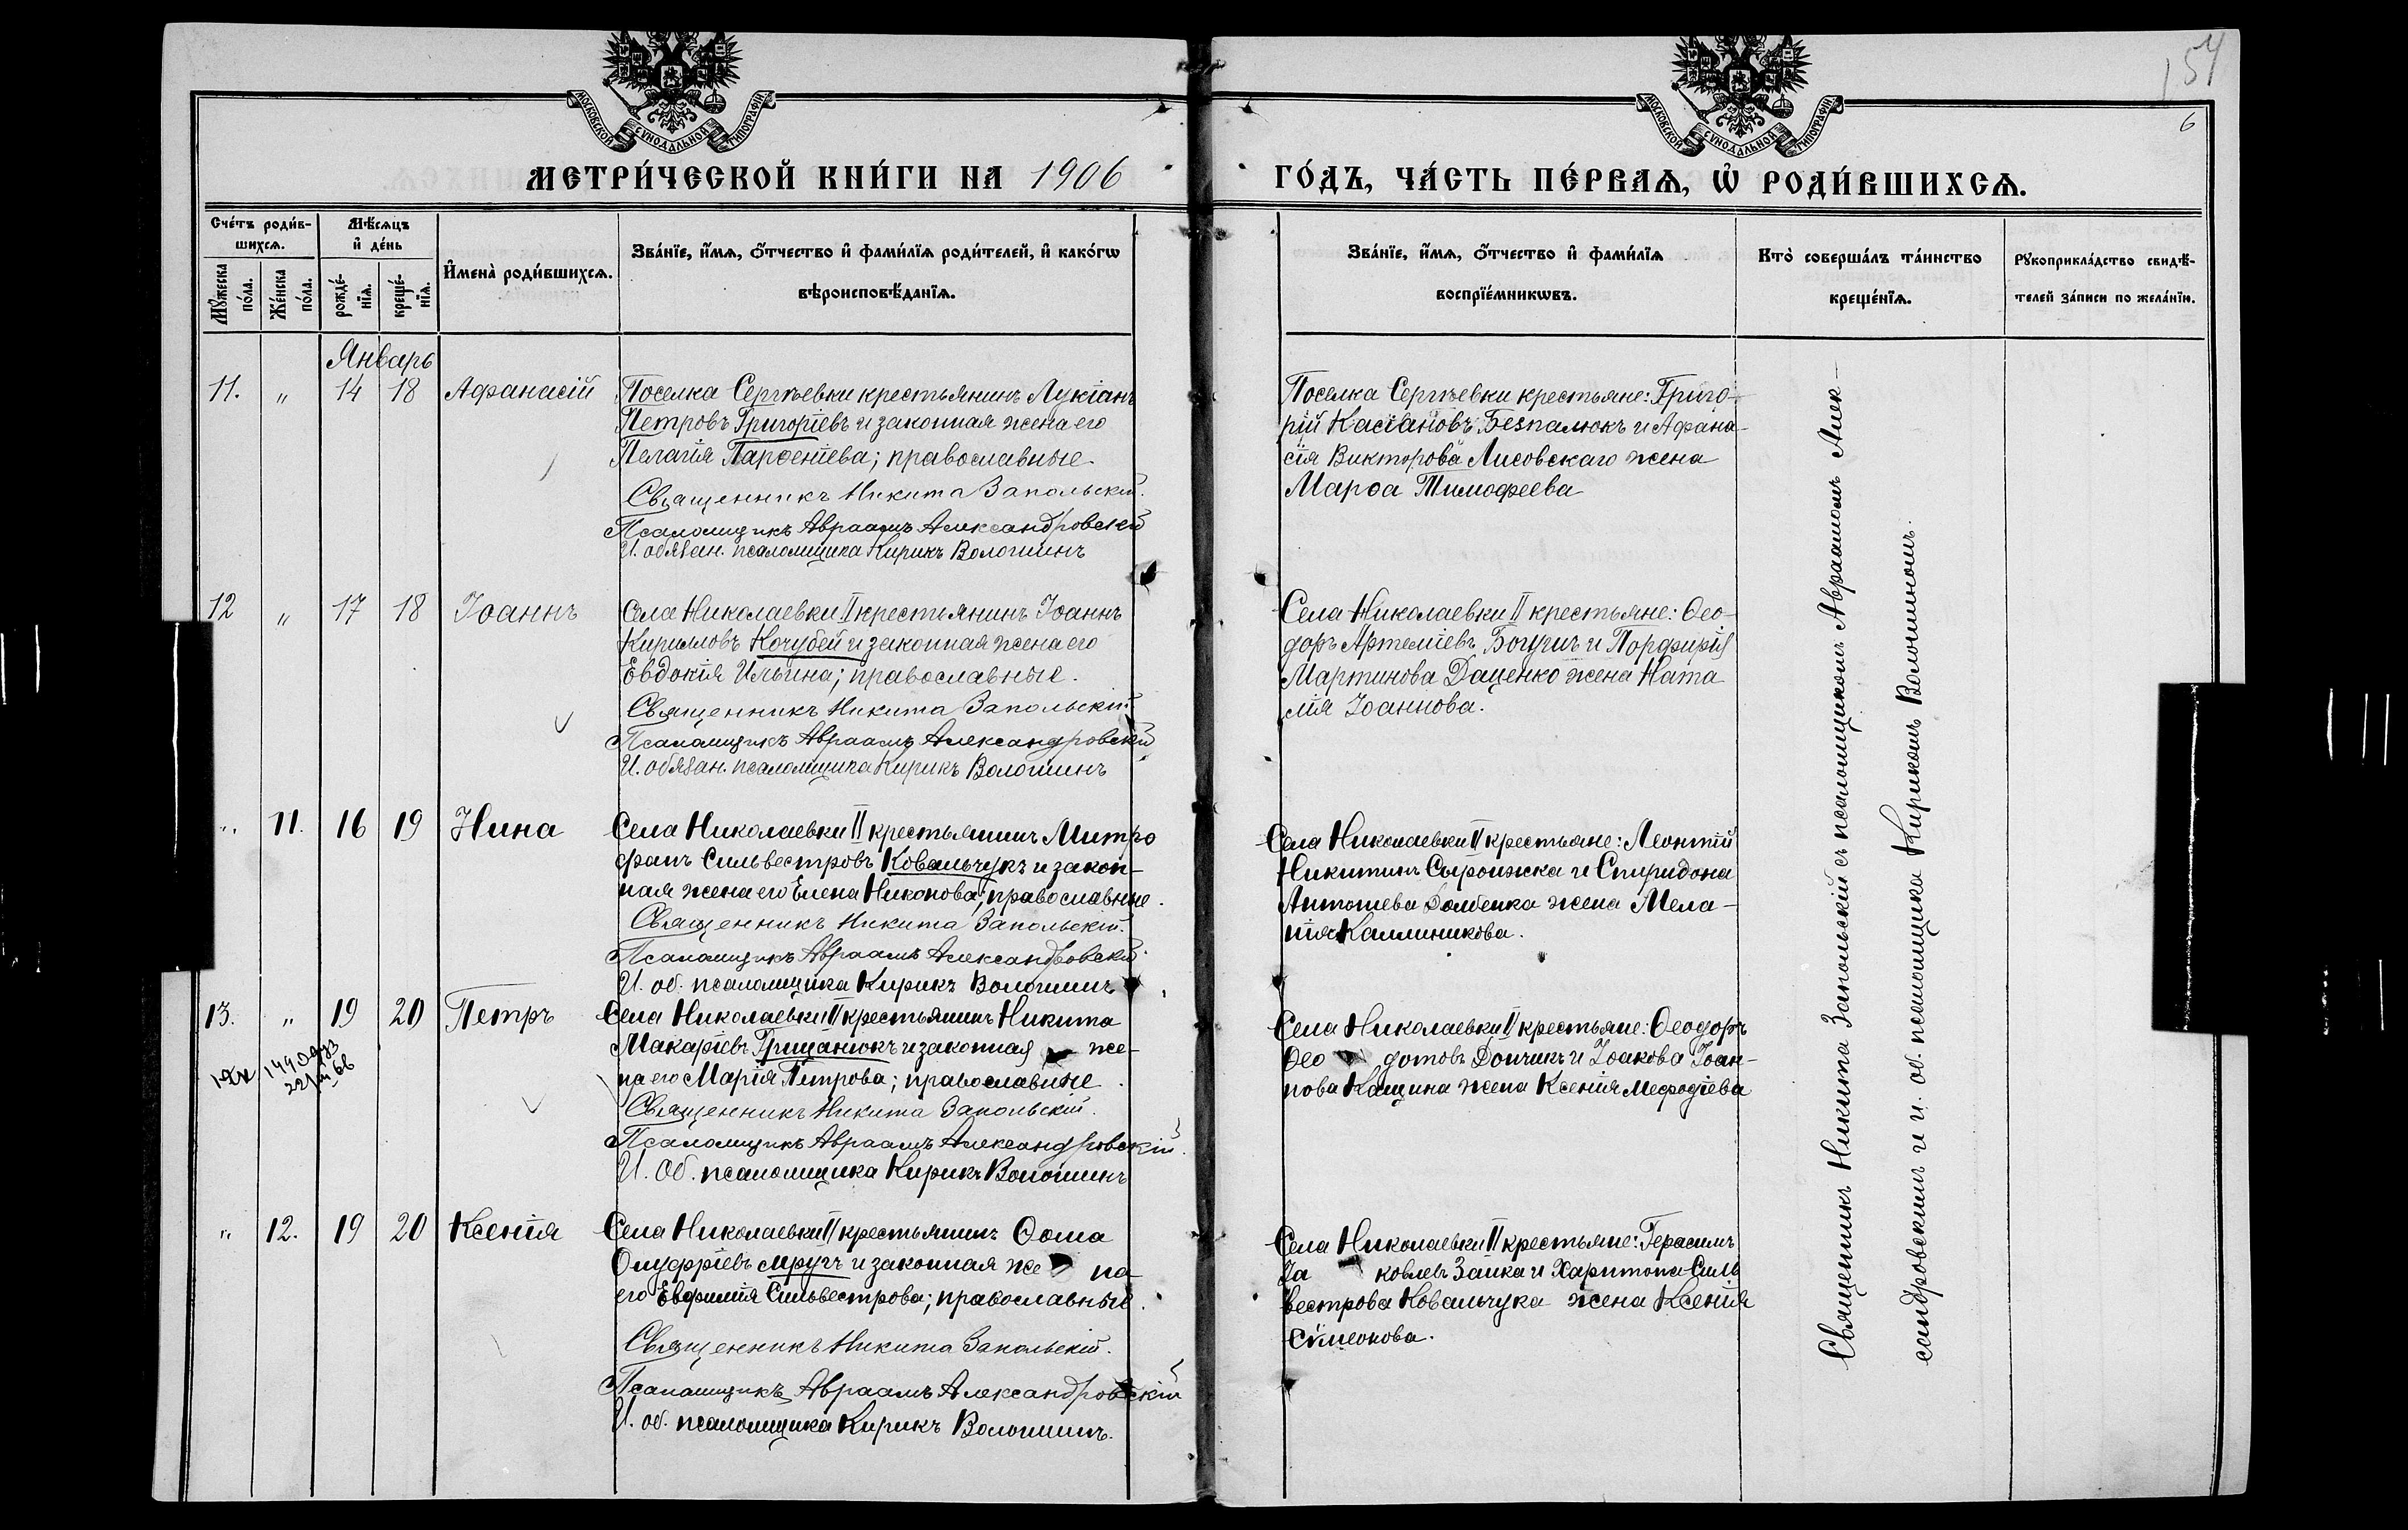 154
6
МОСКОВСКОЙ СѴНОДАЛЬНОЙ ТИПОГРАФІИ
МОСКОВСКОЙ СѴНОДАЛЬНОЙ ТИПОГРАФІИ
МЕТРИ́ЧЕСКОЙ КНИ́ГИ НА 1906
ГО́ДЪ, ЧА́СТЬ ПЕ́РВАѦ, Ѡ҆ РОДИ́ВШИХСѦ.
Сче́тъ роди́в-
шихсѧ.
Мꙋ́жеска по́ла.
Же́нска по́ла.
Мѣ́сѧцъ
и҆ де́нь
рожде́-
нїѧ.
креще́-
нїѧ.
И҆мена̀ роди́вшихсѧ.
Зва́нїе, и҆́мѧ, ѻ҆́тчество и҆ фами́лїѧ роди́телей, и҆ како́гѡ
вѣроисповѣ́данїѧ.
Зва́нїе, и҆́мѧ, ѻ҆́тчество и҆ фами́лїѧ
воспрїе́мникѡвъ.
Кто̀ соверша́лъ та́инство
креще́нїѧ.
Рꙋкоприкла́дство свидѣ́-
телей за́писи по жела́нїю.
Январь
11. „ 14 18 Афанасій
Поселка Сергѣевки крестьянинъ Лукіанъ
Петровъ Григоріевъ и законная жена его
Пелагія Парѳеніева; православные.
Священникъ Никита Запольскій.
Псаломщикъ Авраамъ Александровскій
И. обязан. псаломщика Кирикъ Волошинъ
Поселка Сергѣевки крестьяне: Григо-
рій Касіановъ Безпалюкъ и Афана-
сія Викторова Лисовскаго жена
Марѳа Тимофеева
12 „ 17 18 Іоаннъ
Села Николаевки II крестьянинъ Іоаннъ
Кирилловъ Кочубей и законная жена его
Евдокія Ильина; православные.
Священникъ Никита Запольскій
Псаломщикъ Авраамъ Александровскій
И. обязан. псаломщика Кирикъ Волошинъ
Села Николаевки II крестьяне: Ѳео-
доръ Артеміевъ Богучъ и Порфирія
Мартинова Даценко жена Ната
лія Іоаннова.
„ 11. 16 19 Нина
Села Николаевки II крестьянинъ Митро
фанъ Сильвестровъ Ковальчукъ и закон-
ная жена его Елена Никонова; православные.
Священникъ Никита Запольскій.
Псаломщикъ Авраамъ Александровскій.
И. об. псаломщика Кирикъ Волошинъ
Села Николаевки II крестьяне: Леонтій
Никитинъ Сыроижка и Спиридона
Антониева жена Мела-
нія Каллиникова.
13. „ 19 20 Петръ
Села Николаевки II крестьянинъ Никита
Макаріевъ Грищанюкъ и законная же-
на его Марія Петрова; православные.
Священникъ Никита Запольскій.
Псаломщикъ Авраамъ Александровскій.
И. Об. псаломщика Кирикъ Волошинъ
Села Николаевки II крестьяне: Ѳеодоръ
Ѳео дотовъ Дончикъ и Іоакова Іоан-
нова Кащина жена Ксенія Меѳодіева
„ 12. 19 20 Ксенія
Села Николаевки II крестьянинъ Ѳома
Онуфріевъ Мругъ и законная же на
его Евфимія Сильвестрова; православные.
Священникъ Никита Запольскій.
Псаломщикъ Авраамъ Александровскій
И. об. псаломщика Кирикъ Волошинъ.
Села Николаевки II крестьяне: Герасимъ
Іа ковлевъ Заика и Харитона Силь
вестрова Ковальчука жена Ксенія
Сѵмеонова.
Священникъ Никита Запольскій съ псаломщикомъ Авраамомъ Алек-
сандровскимъ и и. об. псаломщика Кирикомъ Волошиномъ.